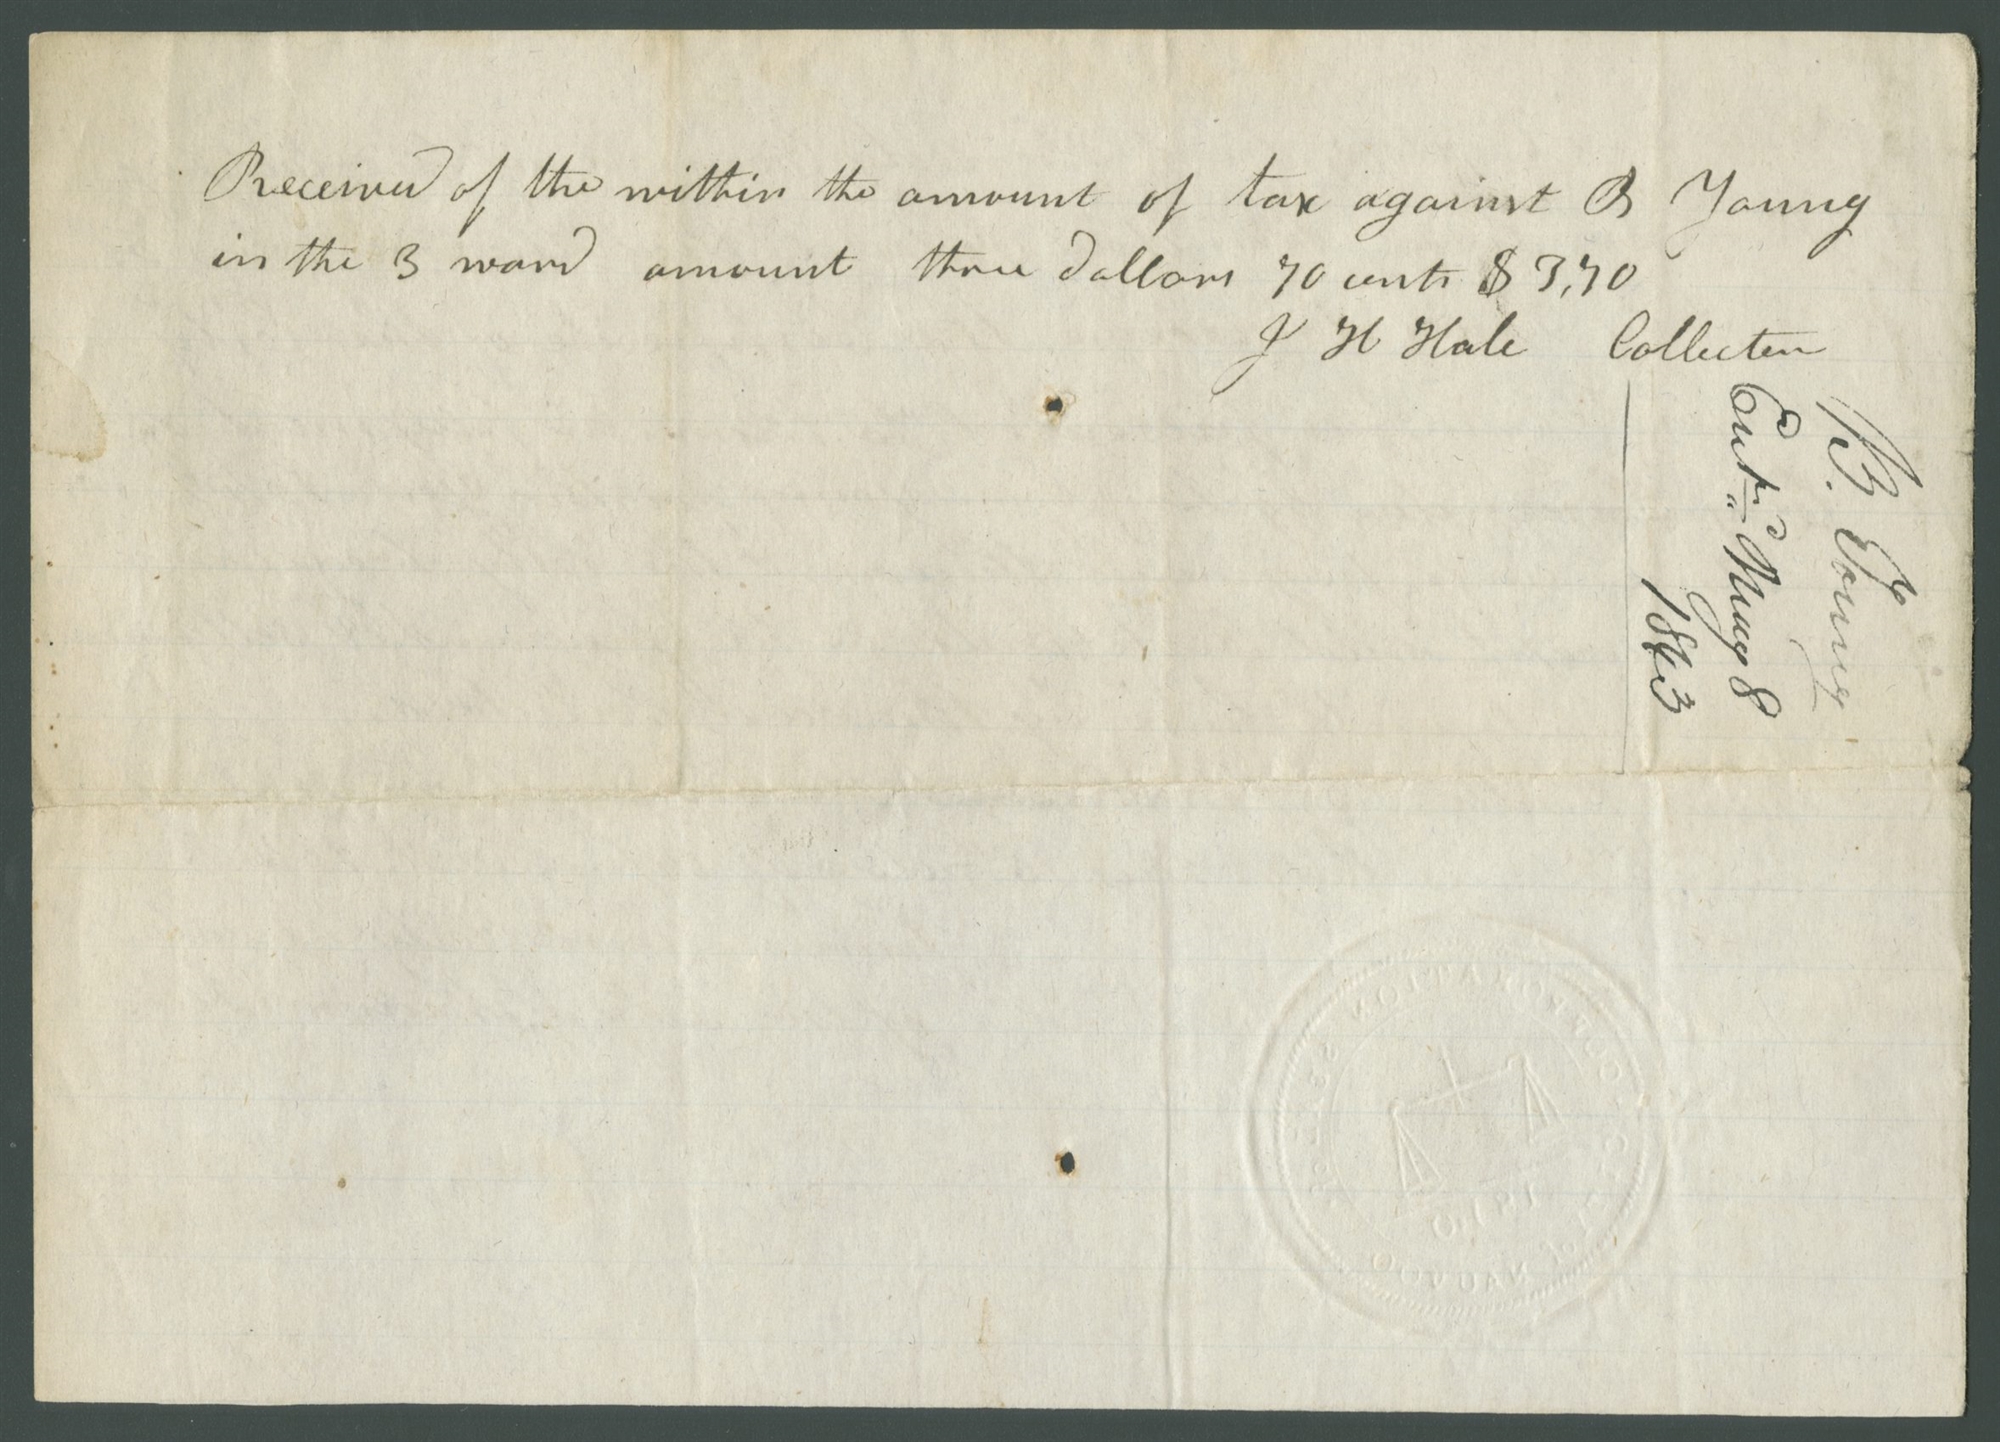 Received of the within the amount of tax against B Young
in the 3 ward amount three dollars 70 cents $3,70
J H Hale Collecter
B. Young
May 8
1843
CORPORATION SEAL OF
CITY of NAUVOO